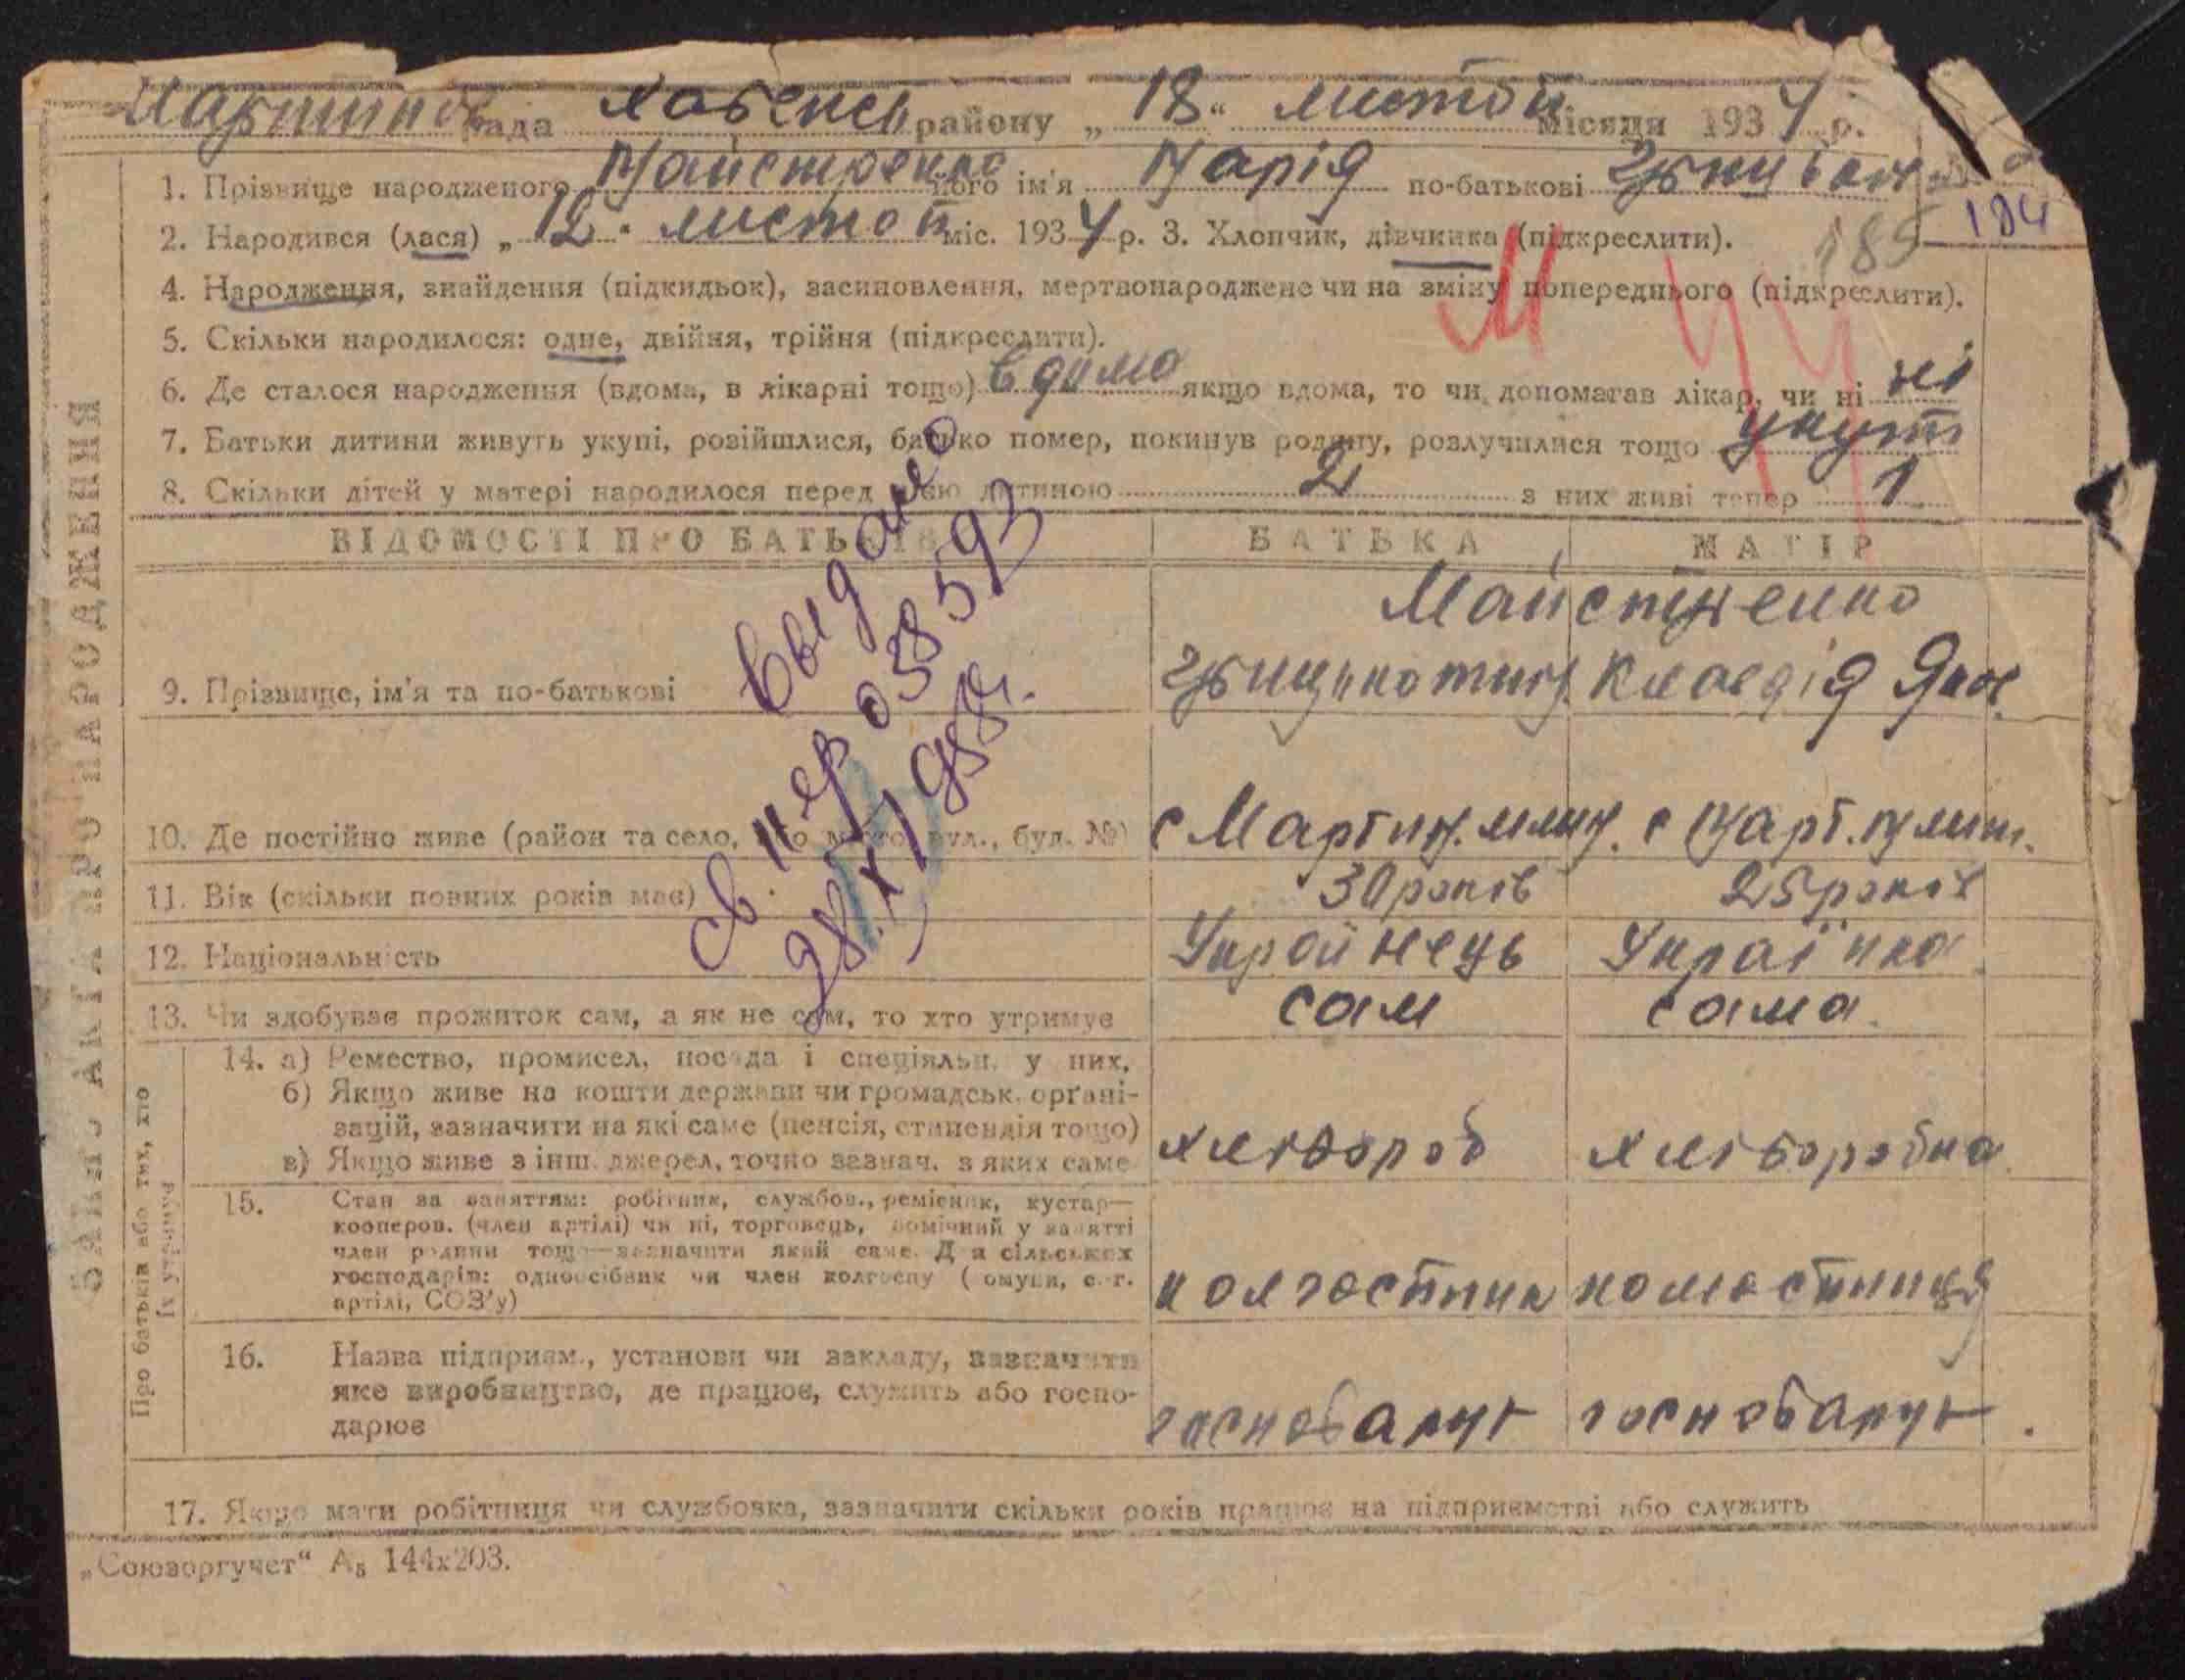 Мартинов рада Хабенськ району „ 18 “ листоп місяця 1934 р.
1. Прізвище народженого Майстренко його ім'я Марія по-батькові
2. Народився (лася) „ 12 " листоп міс. 1934 р. 3. Хлопчик, дівчинка (підкреслити).
185 184
М
4. Народження, знайдення (підкидьок), засиновлення, мертвонароджене чи на зміну попереднього (підкреслити).
5. Скільки народилося: одне, двійня, трійня (підкреслити).
6. Де сталося народження (вдома, в лікарні тощо) вдома якщо вдома, то чи допомагав лікар, чи ні ні
7. Батьки дитини живуть укупі, розійшлися, батько помер, покинув родину, розлучилися тощо укупі
8. Скільки дітей у матері народилося перед цією дитиною 2 з них живі тепер 1
ЗАПИС АКТА ПРО НАРОДЖЕННЯ
ВІДОМОСТІ ПРО БАТЬКІВ БАТЬКА МАТІР
Майстренко
9. Прізвище, ім'я та по-батькові Клавдія Яков
Выдано
св. нер 038593
28.X 1955г.
10. Де постійно живе (район та село, або місто, вул., буд. №) с Мартин. с Март.
11. Вік (скільки повних років має) 30 років 25 років
12. Національність Українець Українка
13. Чи здобуває прожиток сам, а як не сам, то хто утримує сам сама
Про батьків або тих, хто їх утримує
14. а) Ремество, промисел, посада і спеціяльн. у них,
б) Якщо живе на кошти держави чи громадськ. орґані-
зацій, зазначити на які саме (пенсія, стипендія тощо)
в) Якщо живе з інш. джерел, точно зазнач. з яких саме хлібороб хліборобка
15. Стан за заняттям: робітник, службов., ремісник, кустар—
кооперов. (член артілі) чи ні, торговець, помічний у занятті
член родини тощо—зазначити який саме. Для сільських
господарів: одноосібник чи член колгоспу (комуни, с.-г.
артілі, СОЗ'у) колгоспник колгоспниця
16. Назва підприєм., установи чи закладу, зазначити
яке виробництво, де працює, служить або госпо-
дарює
17. Якщо мати робітниця чи службовка, зазначити скільки років працює на підприємстві або служить
„Союзоргучет“ А₅ 144х203.